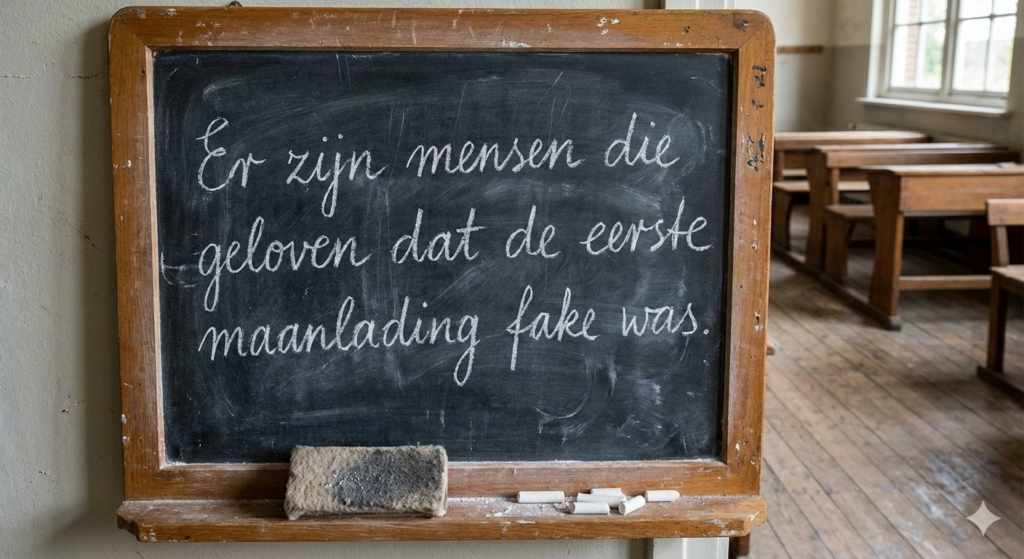 Er zijn mensen die
geloven dat de eerste
maanlading fake was.